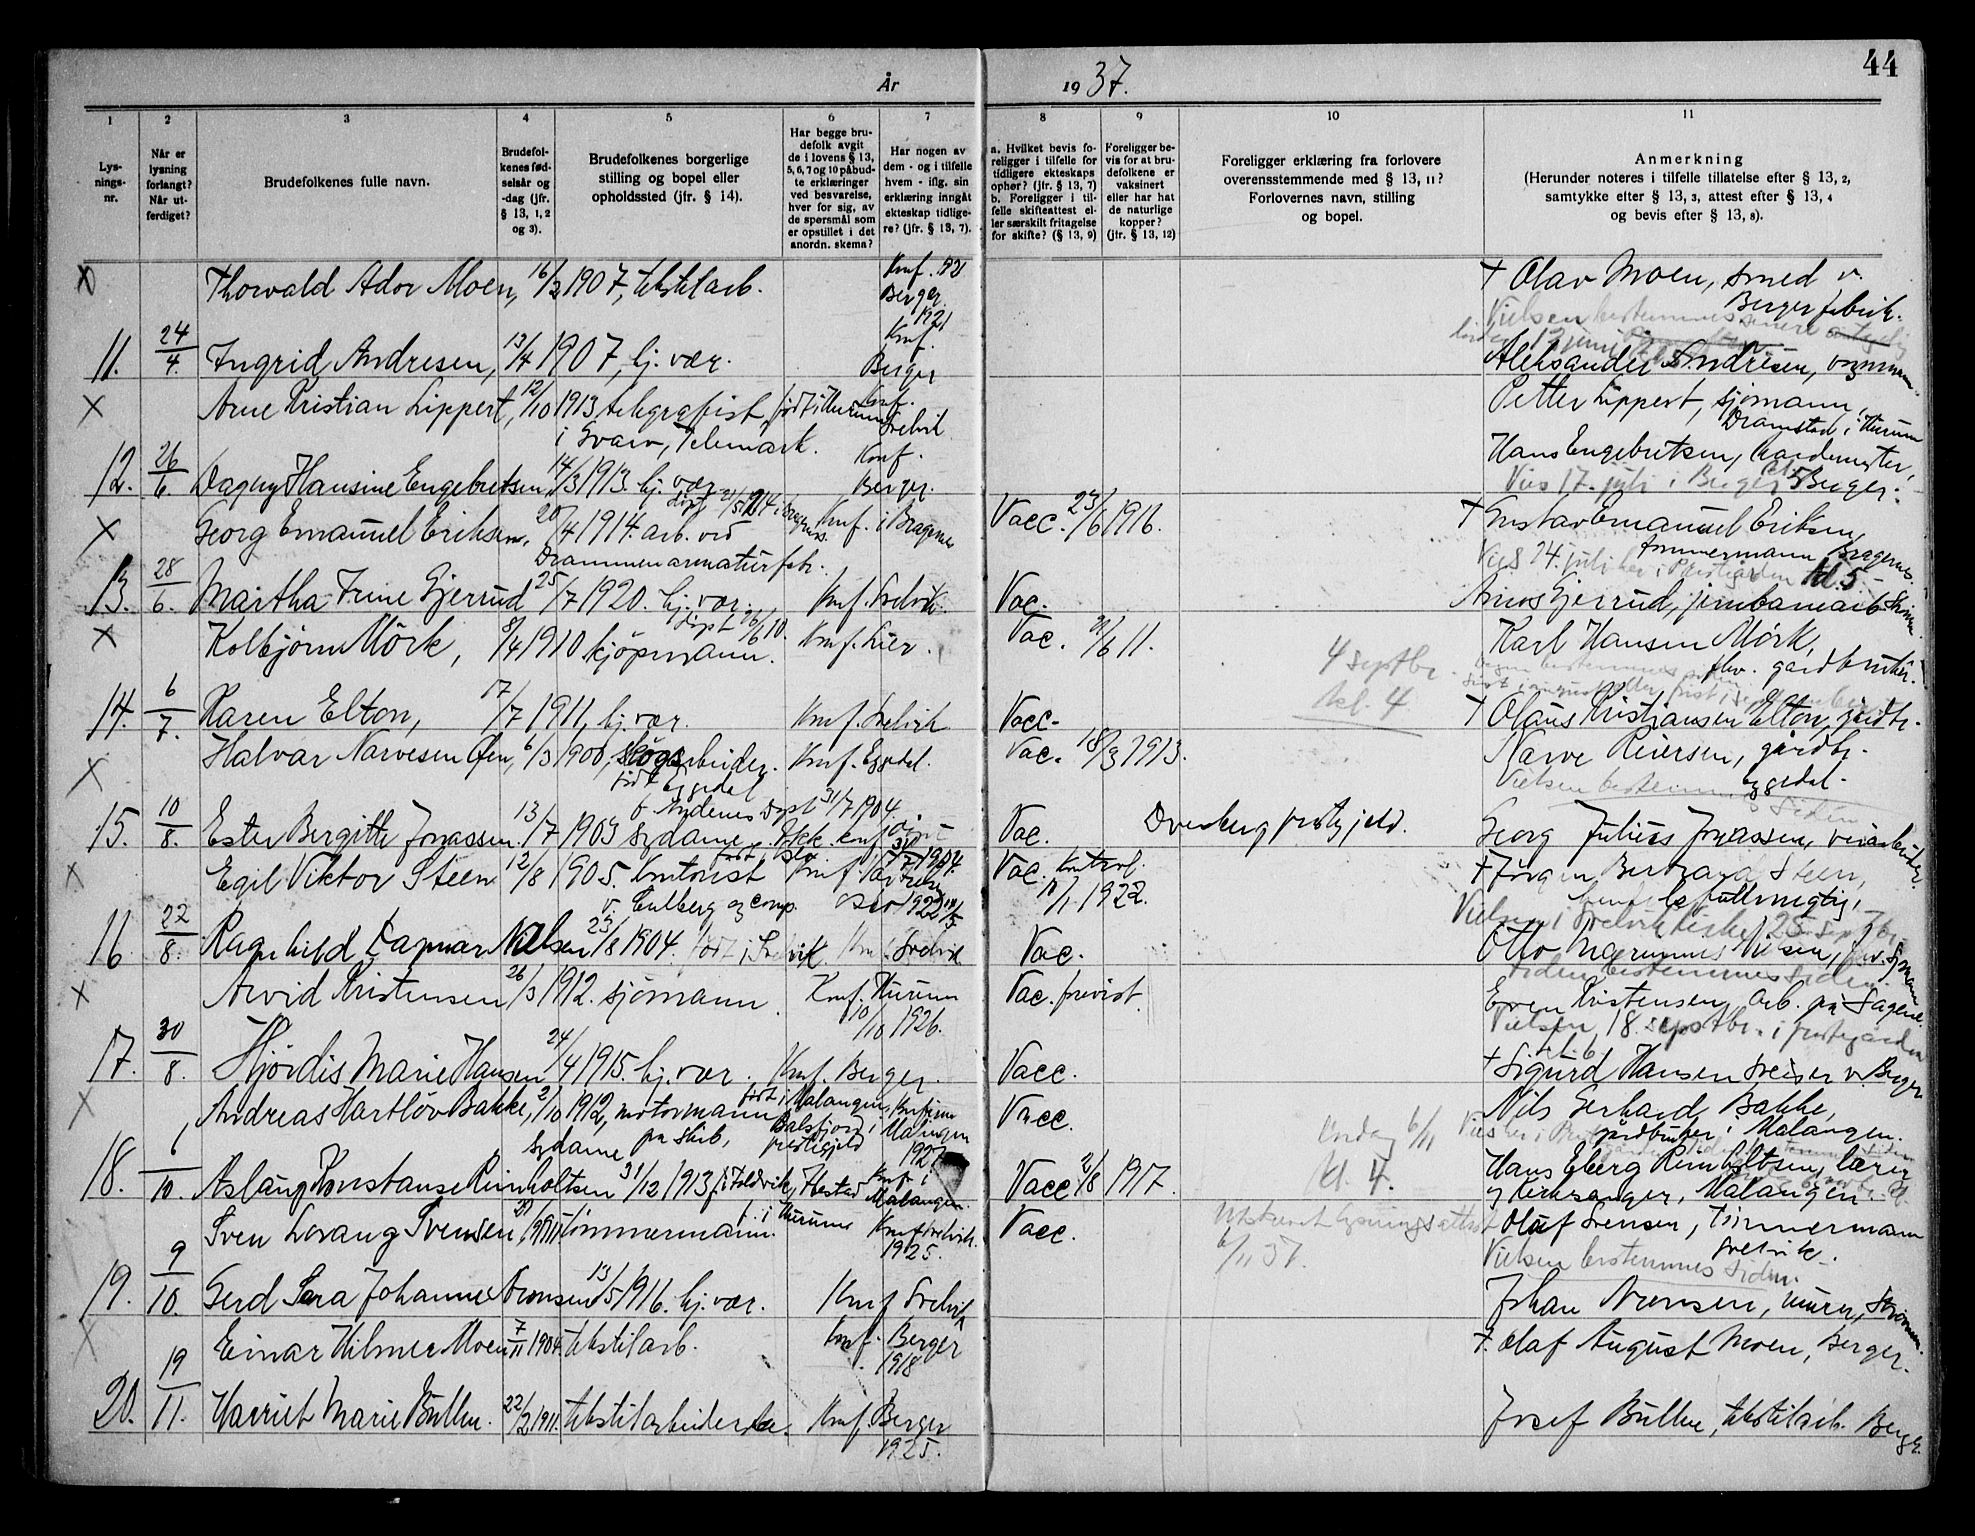 44
År 1937.
1 2 3 4 5 6 7 8 9 10 11
Lys-
nings-
nr.
Når er
lysning
forlangt?
Når ut-
ferdiget?
Brudefolkenes fulle navn.
Brudefol-
kenes fød-
selsår og
-dag (jfr.
§ 13, 1, 2
og 3).
Brudefolkenes borgerlige
stilling og bopel eller
opholdssted (jfr. § 14).
Har begge bru-
defolk avgit
de i lovens § 13,
5, 6, 7 og 10 påbud-
te erklæringer
ved besvarelse,
hver for sig, av
de spørsmål som
er opstillet i det
anordn. skema?
Har nogen av
dem - og i tilfelle
hvem - iflg. sin
erklæring inngåt
ekteskap tidlige-
re? (jfr. § 13, 7).
a. Hvilket bevis fo-
religger i tilfelle for
tidligere ekteskaps
ophør? (jfr. § 13, 7)
b. Foreligger i til-
felle skifteattest el-
ler særskilt fritagelse
for skifte? (§ 13, 9)
Foreligger be-
vis for at bru-
defolkene er
vaksinert
eller har hat
de naturlige
kopper?
(jfr. § 13, 12)
Foreligger erklæring fra forlovere
overensstemmende med § 13, 11?
Forlovernes navn, stilling
og bopel.
Anmerkning
(Herunder noteres i tilfelle tillatelse efter § 13, 2,
samtykke efter § 13, 3, attest efter § 13, 4
og bevis efter § 13, 8).
x Thorvald Ador Moen, 16/2 1907, tekstilarb. Konf. 1921 Berger
† Olav Moen, smed v.
Berger fabrik.
11. 24/4. Ingrid Andresen, 13/4 1907, hj. vær. 1921 Konf. Berger
Aleksander Andresen,
x Arne Kristian Lippert, 12/10 1913, telegrafist, født i Hurum Konf. Svelvik
i Svarv, Telemark.
Petter Lippert, sjømann,
Dramstad i Hurum
12. 26/6. Dagny Hansine Engebretsen, 14/3 1913. hj. vær Konf. Berger.
Hans Engebretsen,
Vies 17. juli i Berger Berger.
x Georg Emanuel Eriksen, 20/4 1914. arb. ved Konf. i Bragernes Vacc. 23/6 1916.
Drammen armaturfabr.
† Gustav Emanuel Eriksen,
tømmermann Bragernes.
Vies 24. juli her i Prestgården kl. 5
13. 28/6. Martha Irine Gjerrud 25/7 1920. hj. vær. Konf. Svelvik Vac.
Gjerrud, jernbanearb.
x Kolbjørn Mørk, 8/4 1910 kjøpmann. døpt 26/6 10. Konf. Lier. Vac. 21/6 11.
Karl Hansen Mørk,
fhv. gårdbruker.
4 septbr.
kl. 4
14. 6/7. Karen Elton, 17/7 1911, hj. vær. Konf. Svelvik Vacc.
† Olaus Kristiansen Elton, gårdbr.
x Halvar Narvesen Øen, 6/3 1908, skogsarbeider. Konf. Eggedal. Vac. 18/3 1913.
født Eggedal
Narve Reiersen, gårdbr.
Eggedal.
Vielsen bestemmes siden
15. 10/8. Ester Bergitte Jonassen. 13/7 1903 sydame. Vac.
døpt 31/7 1904.
prestegjeld.
Georg Julius Jonassen, veiarbeider.
x Egil Viktor Steen 12/8 1905. Kontorist Konf. Vac. Kontrol.
v. og comp. 1922 11/1 1922.
† Jørgen Steen,
Vielsen i Svelvik kirke 25. septbr.
16. 22/8. Ragnhild Dagmar Nielsen 23/8 1904. født i Svelvik Konf. Svelvik Vac.
Otto Nielsen, fhv. sjømann
x Arvid Kristensen 26/3 1912. sjømann Konf. Hurum Vac. forevist.
10/10 1926.
Siden bestemmes siden.
Even Kristensen, arb. på Sagene.
Vielsen 18. septbr. i prestegården
kl. 6
17. 30/8. Hjørdis Marie Hansen 24/4 1915. hj. vær. Konf. Berger. Vacc.
† Sigurd Hansen v. Berger
x Andreas Hartløv Bakke, 2/10 1912, motormann født i Malangen, Vacc.
på skib, Balsfjord prestegjeld Malangen 1927
Nils Gerhard Bakke,
gårdbruker i Malangen.
6/11
kl. 4.
18. 6/10. Aslaug Konstanse Reinholtsen 31/12 1913 sydame Konf. i Malangen Vacc 2/8 1917.
Hans Eberg Reinholtsen, lærer
og kirkesanger, Malangen.
Sven Lovang Svensen, tømmermann. f. i Hurum Konf. Svelvik. 1925. Vacc.
Utskrevet lysningsattest
6/11 37.
Olaf Svensen, tømmermann
Svelvik.
Vielsen bestemmes siden.
19. 9/10. Gerd Sara Johanne Arensen 13/5 1916. hj. vær. Konf Svelvik
Johan Arensen, murer,
x Einar Hilmer Moen 7/11 1904. tekstilarb. Konf. Berger 1918
†. Olaf August Moen, Berger.
20. 19/11. Harriet Marie Bullen. 22/2 1911. tekstilarbeiderske. Konf. Berger 1925.
Josef Bullen, tekstilarb. Berger.